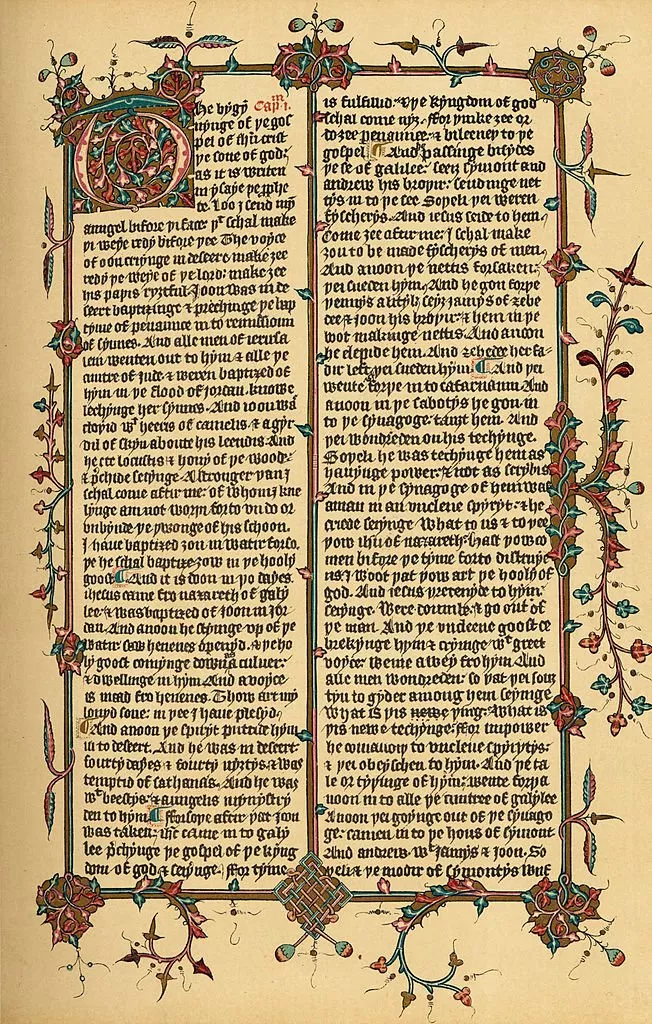 The bygy Capm. 1.
nynge of ye gos
pel of ihū crist
ye sone of god:
as it is writen
in ysaye ye pphe
te. Loo j send my
aungel bifore yi face: yt schal make
yi weye redy bifore yee. The voyce
of oon cryinge in desert: make zee
redy ye weye of ye lord: make zee
his papis ryztful. Joon was in de
sert baptizinge & prechinge ye bap
tyme of penaunce in to remissioun
of synnes. And alle men of ierusa
lem wenten out to hym & alle ye
cuntre of Jude & weren baptized of
hym in ye flood of jordan. knowe
lechynge her synnes. And ioon was
cloyid wt heeris of camelis & a gyr
dil of skyn aboute his leendis. And
he ete locustis & hony of ye wode:
& pchide seiynge. A stronger yan j
schal come aftir me: of whom j kne
lynge am not worpi forto vn do or
vnbynde ye ywonge of his schoon.
J haue baptized zou in watir forso.
ye he schal baptize zow in ye hooly
goost. And it is doon in yo dayes.
ihesus came fro nazareth of galy
lee & was baptized of ioon in jor
dan. And anoon he styinge vp of ye
watir saw heuenes openyd. & ye ho
ly goost comynge doun as a culuer:
& dwellinge in hym. And a voyce
is maad fro heuenes. Thow art my
louyd sone: in yee j haue plesyd.
And anoon ye spiryt puttide hym
in to desert. And he was in desert
fourty dayes & fourty nyztys & was
temptid of sathanas. And he was
wt beestys: & aungelis mynystry
den to hym. fforsoye aftir yat joon
was taken: ihc came in to galy
lee pchynge ye gospel of ye kyng
dom of god & seiynge. ffor tyme
is fulfillid: & ye kyngdom of god
schal come nyz. ffor yinke zee or
do zee penaunce: & bileeuey to ye
gospel. And passinge bisydes
ye se of galilee. seez symont and
andrew his broyir: sendinge net
tys in to ye see Soyeli yei weren
fyscherys. And iesus seide to hem.
Come zee aftir me: j schal make
zou to be made fyscherys of men.
And anoon ye nettis forsaken:
yei sueden hym. And he gon forye
yennys a lityl: seyz jamys of zebe
dee & joon his broyir: & hem in ye
boot makinge nettis. And anoon
he clepide hem. And zebedee her fa-
dir left: yei sueden hym. And yei
wente forye in to cafarnaum And
anoon in ye sabotys he gon in
to ye synagoge: tauzt hem. And
yei wondreden on his techynge.
Soyeli he was techynge hem as
hauynge power: & not as scrybis
And in ye synagoge of hem was
a man in an vnclene spyryt: & he
criede seiynge What to us & to yee
yow ihū of nazareth: hast yow co
men bifore ye tyme forto distruye
us: j woot yat yow art ye hooly of
god. And iesus yretenyde to hym:
seiynge. Were doumb. & go out of
ye man. And ye vnclene goost te
brekynge hym & cryinge wt greet
voyce: wente awey fro hym. And
alle men wondreden: so yat yei souz
tyn to gyder among hem seyinge
What is yis newe ying. What is
yis newe techynge. ffor in power
he comaundy to vnclene spyrytys:
& yei obeyschen to hym. And ye ta
le or tyyinge of hym: wente forya
noon in to alle ye cuntree of galylee
Anoon yei goynge oute of ye synago
ge: camen in to ye hous of symont
And andrew. Wt jamys & joon. So
yeli & ye modir of symontys wiif